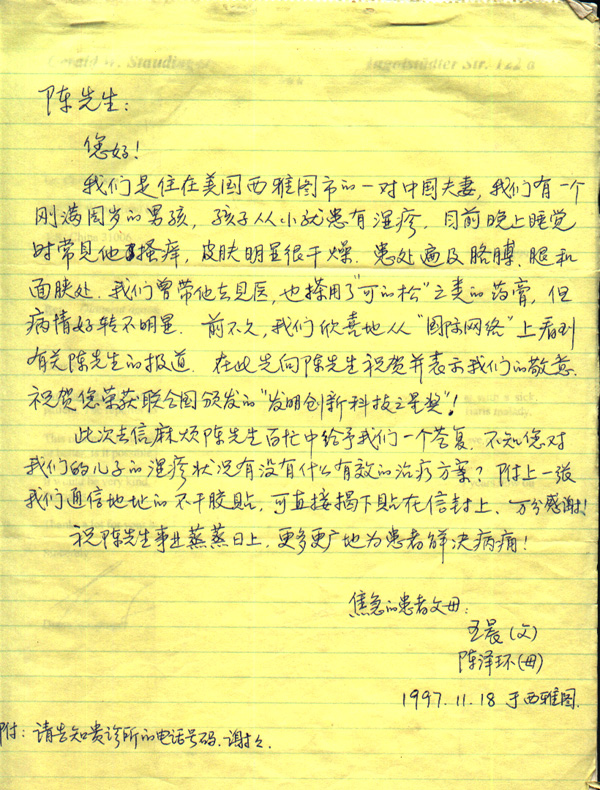 Gerald W. Staudinger Ingolstädter Str. 122 a
陈先生:
您好!
我们是住在美国西雅图市的一对中国夫妻,我们有一个
刚满周岁的男孩,孩子从小就患有湿疹,目前晚上睡觉
时常见他搔痒,皮肤明显很干燥.患处遍及胳膊,腿和
面肤处.我们曾带他去见医,也搽用了"可的松"之类的药膏,但
病情好转不明显.前不久,我们欣喜地从"国际网络"上看到
有关陈先生的报道.在此先向陈先生祝贺并表示我们的敬意.
祝贺您荣获联合国颁发的"发明创新科技之星奖"!
此次去信麻烦陈先生百忙中给予我们一个答复.不知您对
我们的儿子的湿疹状况有没有什么有效的治疗方案?附上一张
我们通信地址的不干胶贴,可直接揭下贴在信封上、万分感谢!
祝陈先生事业蒸蒸日上,更多更广地为患者解决病痛!
焦急的患者父母:
王晨(父)
陈泽环(母)
1997.11.18 于西雅图.
附:请告知贵诊所的电话号码.谢谢.